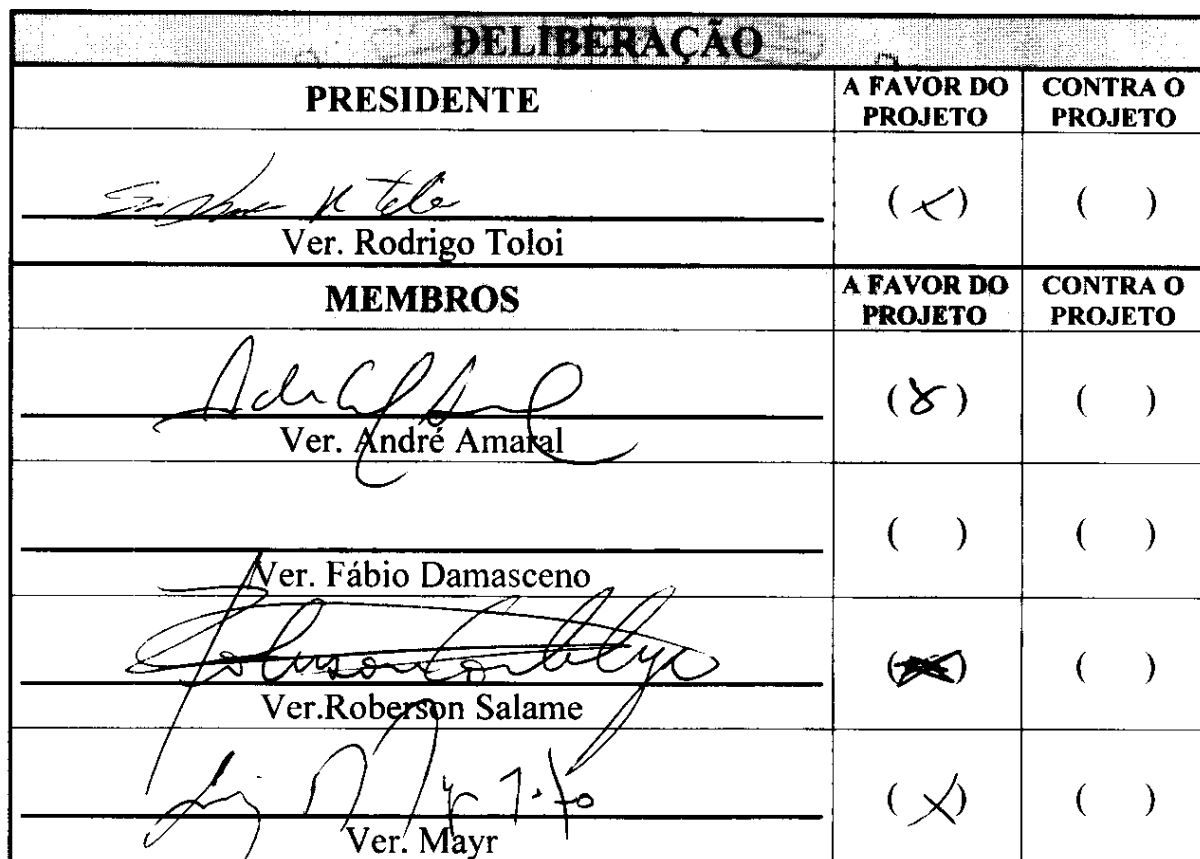 DELIBERAÇÃO
PRESIDENTE
A FAVOR DO PROJETO
CONTRA O PROJETO
(X)
( )
Ver. Rodrigo Toloi
MEMBROS
A FAVOR DO PROJETO
CONTRA O PROJETO
( )
Ver. André Amaral
( )
( )
Ver. Fábio Damasceno
(X)
( )
Ver.Roberson Salame
(X)
( )
Ver. Mayr